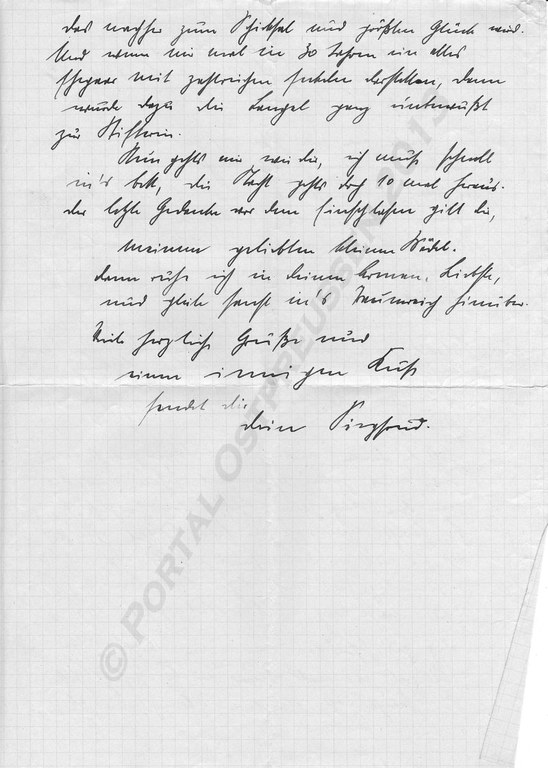 das nachher zum Schicksal und größten Glück wird.
Und wenn wir mal in 30 Jahren ein altes
Ehepaar mit zahlreichen Enkeln darstellen, dann
wurde dazu die ganz unbewußt
zur Stifterin.
Nun geht's mir wie dir, ich muß schnell
in's Bett, die Nacht geht's doch 10 mal heraus.
Der letzte Gedanke vor dem Einschlafen gilt dir,
meinem geliebten kleinen Mädel.
Dann ruhe ich in deinen Armen, Liebste,
und gleite sanft in's Traumreich hinüber.
Viele herzliche Grüße und
einen innigen Kuß
sendet dir
dein Siegfried.
© PORTAL OSTPREUSSEN 2013